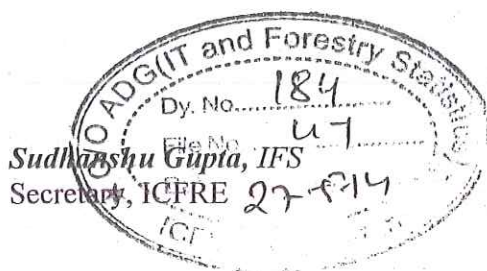 O/O ADG(IT and Forestry Statistics)
Dy. No. 184
File No. 47
Sudhanshu Gupta, IFS
Secretary, ICFRE